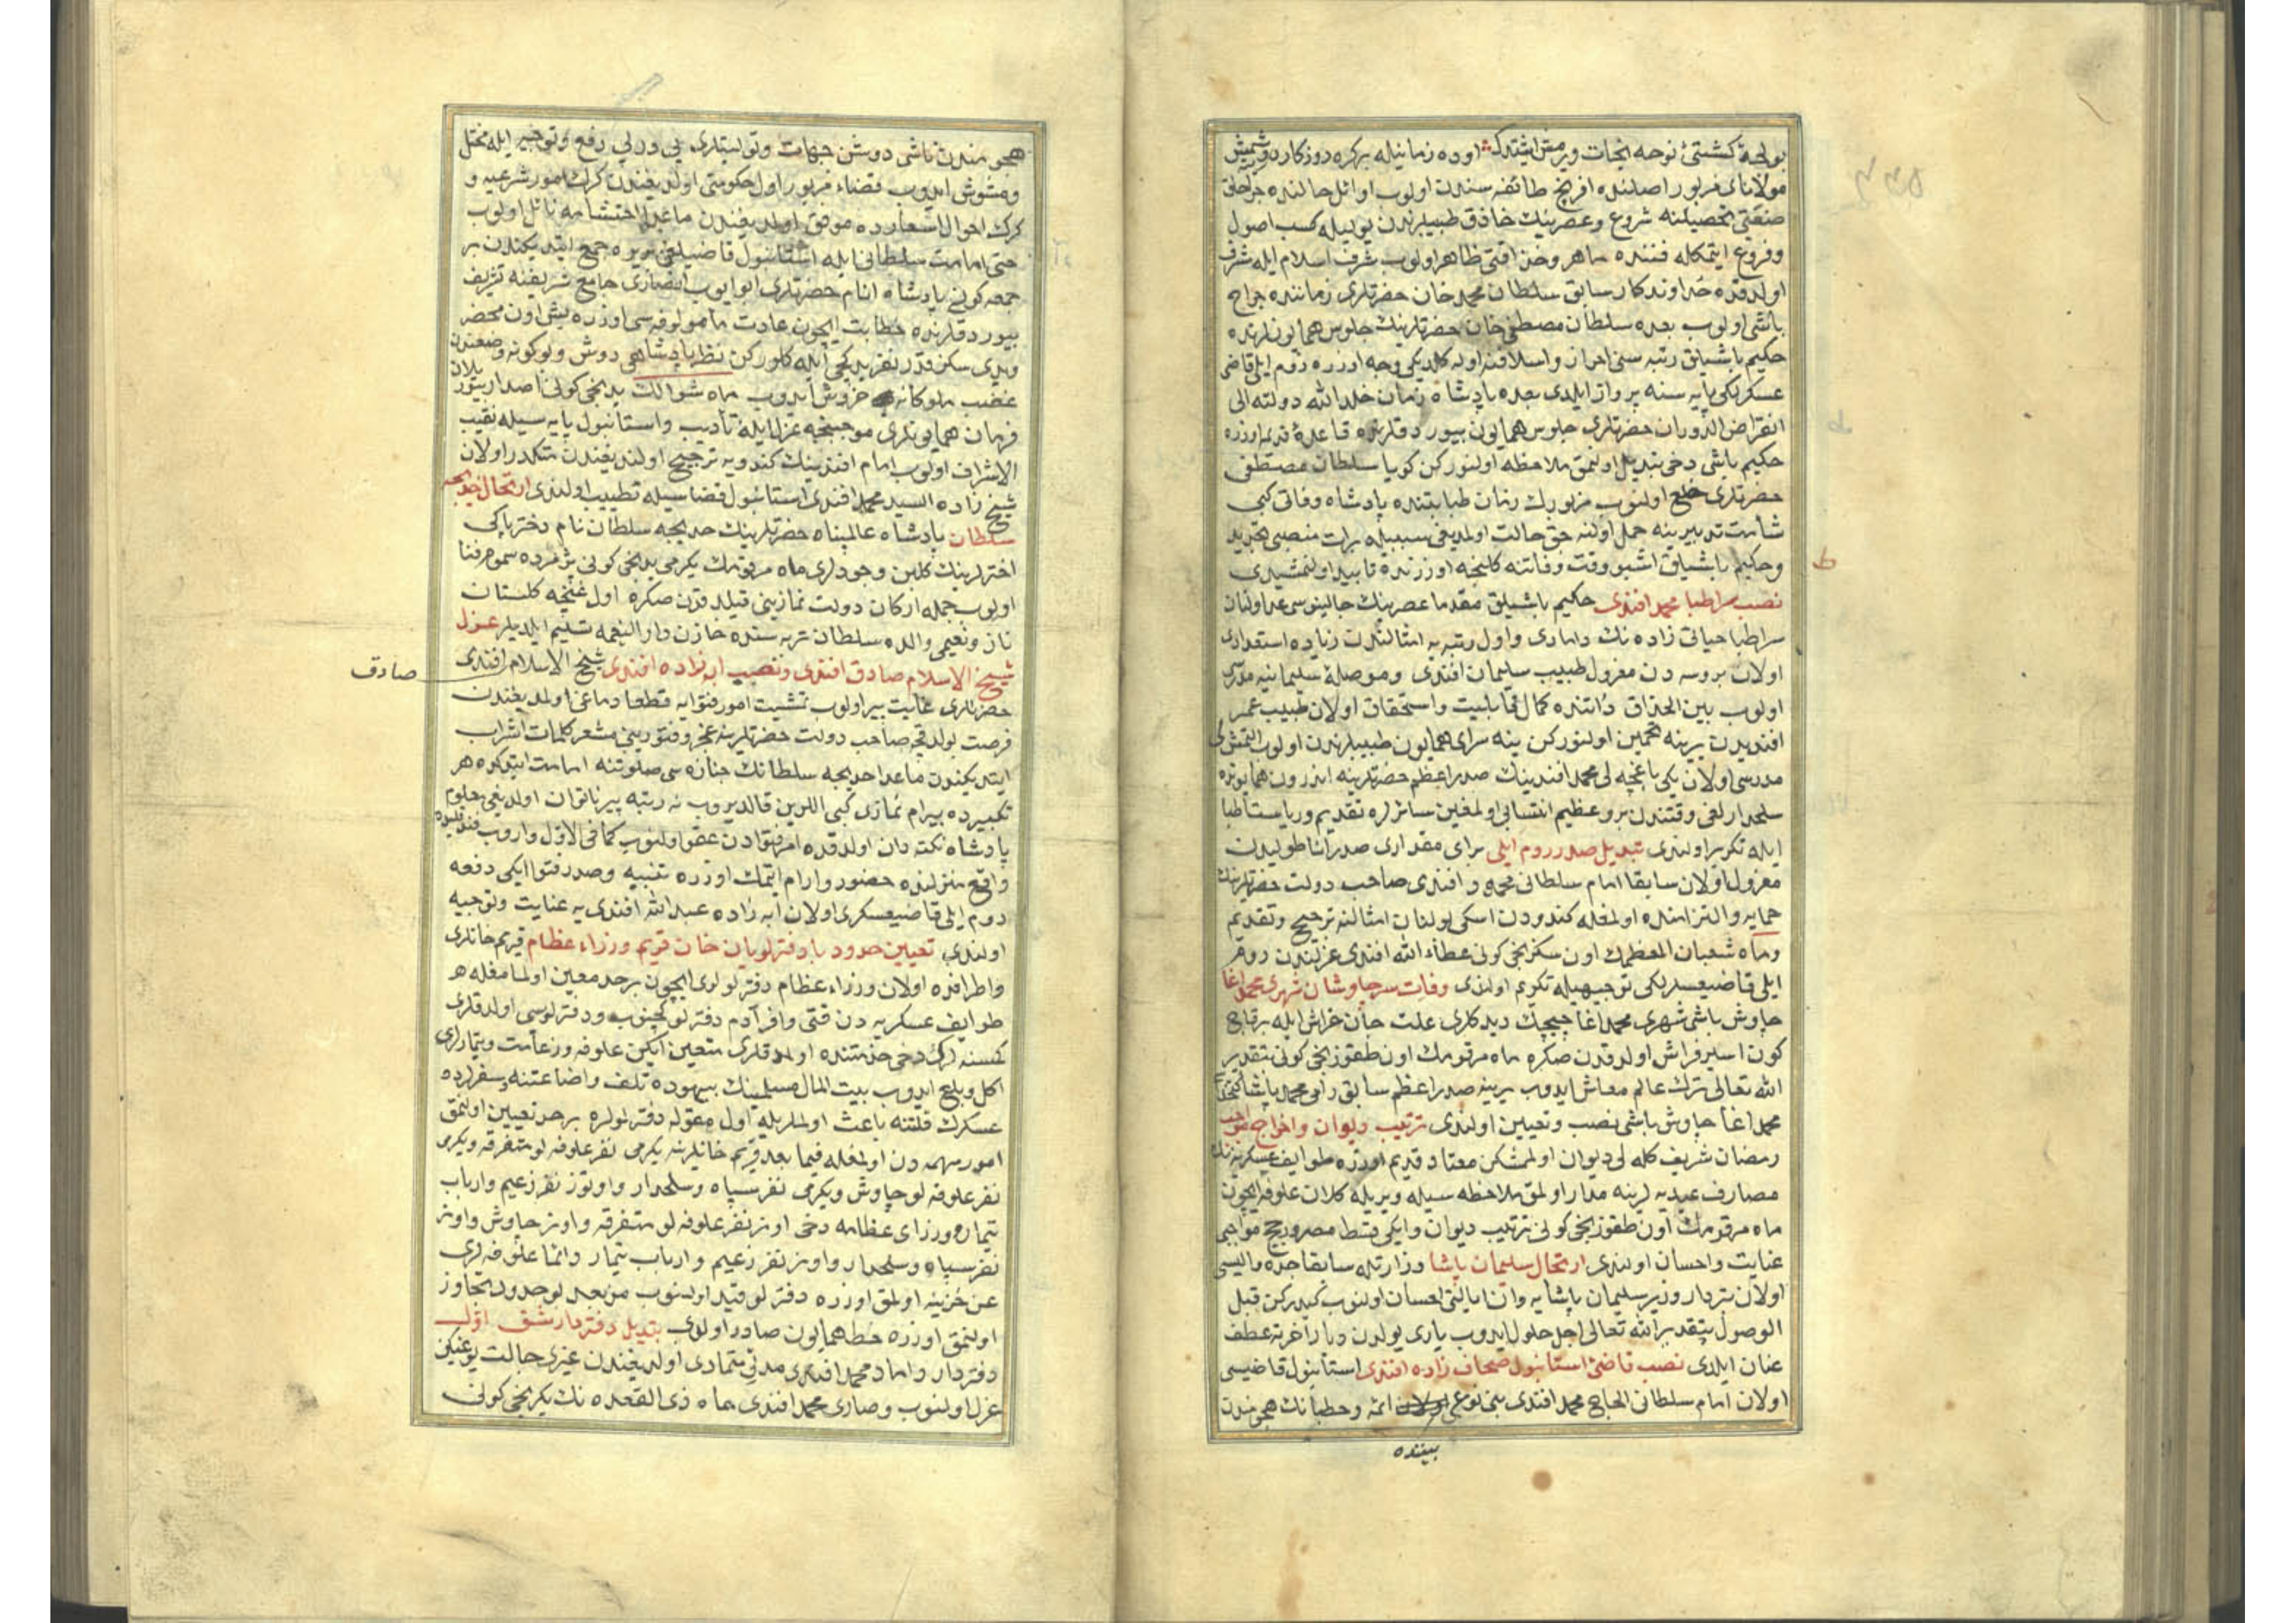 بو لجهٔ كشتئ نوحه نجات ويرمش ايشتدك اوده زمانيله بر كره روزكاره دوشمش
مولاناى مزبور اصلنده افرنج طائفه سندن اولوب اوائل حالنده جراحلق
صنعتى تحصيلنه شروع وعصرينك حاذق طبيبلرندن يوليله كسب اصول
وفروع ايتمكله فننده ماهر وحذاقتى ظاهر اولوب شرف اسلام ايله مشرف
اولدقده خداوندكار سابق سلطان محمد خان حضرتلرى زماننده جراح
باشى اولوب بعده سلطان مصطفى خان حضرتلرينك جلوس همايونلرنده
حكيم باشيلق رتبه سنى احراز واسلافنه اوله كلديكى وجه اوزره روم ايلى قاضى
عسكرلكى پايه سنه پرواز ايلدى بعده پادشاه زمان خلد الله دولته الى
انقراض الدوران حضرتلرى جلوس همايون بيوردقلرنده قاعدهٔ قديم اوزره
حكيم باشى دخى تبديل اولنمق ملاحظه اولنوركن كويا سلطان مصطفى
حضرتلرى خلع اولنوب مزبورك زمان طبابتنده پادشاه وفاتى كبى
شامت تدبيرينه حمل اولنه جق حالت اولمديغى سببيله برات منصبى تجديد
وحكيم باشيلق اشبو وقت وفاتنه كلنجه اوزرنده تأبيد اولنمشيدى
نصب سر اطبا محمد افندى حكيم باشيلق مقدما عصرينك جالينوسى عد اولنان
سر اطبا حياتى زاده نك دامادى واول رتبه يه امثالندن زياده استعدادى
اولان بروسه دن معزول طبيب سليمان افندى وموصلهٔ سليمانيه مدرسى
اولوب بين الحذاق ذاتنده كمال قابليت واستحقاق اولان طبيب عمر
افنديدن بيرينه تخمين اولنوركن ينه سراى همايون طبيبلرندن اولوب التمشلى
مدرسى اولان يكى باغچه لى محمد افندينك صدر اعظم حضرتلرينه اندرون همايونده
سلحدارلغى وقتندن برو عظيم انتسابى اولمغين سائرلره تقديم ورياست اطبا
ايله تكريم اولندى تبديل صدر روم ايلى براى مقدارى صدر اناطوليدن
معزول اولان سابقا امام سلطانى محمود افندى صاحب دولت حضرتلرينك
حمايه والتزامنده اولمغله كندودن اسكى بولنان امثالنه ترجيح وتقديم
وماه شعبان المعظمك اون سكزنجى كونى عطاء الله افندى عزلندن روم
ايلى قاضيعسكرلكى توجيهيله تكريم اولندى وفات سر چاوشان شهرى محمد اغا
چاوش باشى شهرى محمد اغا چيچك ديدكلرى علت جان خراش ايله بر قاچ
كون اسير فراش اولدقدن صكره ماه مرقومك اون طقوزنجى كونى بتقدير
الله تعالى ترك عالم معاش ايدوب يرينه صدر اعظم سابق رامى محمد پاشا كتخداسى
محمد اغا چاوش باشى نصب وتعيين اولندى ترتيب ديوان واخراج مواجب
رمضان شريف كله لى ديوان اولمشكن معتاد قديم اوزره طوايف عسكريه نك
مصارف عيديه لرينه مدار اولمق ملاحظه سيله ويريله كلان علوفه ايچون
ماه مرقومك اون طقوزنجى كونى ترتيب ديوان وايكى قسط مصر و رجج مواجبى
عنايت واحسان اولندى ارتحال سليمان پاشا وزارتله سابقا جده واليسى
اولان بتردار وزير سليمان پاشايه وان ايالتى احسان اولنوب كيدركن قبل
الوصول بتقدير الله تعالى اجل حلول ايدوب يارى يولدن ديار آخرته عطف
عنان ايلدى نصب قاضئ استانبول صحاف زاده افندى استانبول قاضيسى
اولان امام سلطانى الحاج محمد افندى بنى نوعى بيننده ائمه وخطبانك هجومندن
بيننده
هجومندن ناشى دوشن جهات وتوليتلرى پى در پى رفع وتوجيه ايله مختل
ومشوش ايدوب قضاء مزبور اول حكومتى اولديغندن كرك امور شرعيه و
كرك احوال اسعارده موفق اولمديغندن ماعدا احتشامه نائل اولوب
حتى امامت سلطانى ايله استانبول قاضيلغى بر يره جمع ايتديكندن بر
جمعه كونى پادشاه انام حضرتلرى ابو ايوب انصارى جامع شريفنه تشريف
بيوردقلرنده خطابت ايچون عادت مألوفه سى اوزره بشى اون محضر
ويدى سكز قدر نفر يدكجى ايله كلوركن نظر پادشاهى دوش ولوكونه وضعندن
غضب ملوكانه خروش ايدوب ماه شوالك يدنجى كونى اصدار بيوريلان
فرمان همايونلرى موجبنجه عزل ايله تأديب واستانبول پايه سيله نقيب
الاشراف اولوب امام افندينك كندويه ترجيح اولنديغندن متكدر اولان
شيخ زاده السيد محمد افندى استانبول قضاسيله تطييب اولندى ارتحال خديجه
سلطان پادشاه عالمپناه حضرتلرينك خديجه سلطان نام دختر پاكى
اخترلرينك كلبن وجودلرى ماه مرقومك يكرمى يدنجى كونى پژمردهٔ سموم فنا
اولوب جمله اركان دولت نمازينى قيلدقدن صكره اول غنچه كلستان
ناز ونعيمى والده سلطان تربه سنده خازن دار النعيمه تسليم ايلديلر عزل
شيخ الاسلام صادق افندى ونصب ابه زاده افندى شيخ الاسلام افندى
صادق
حضرتلرى غايت پير اولوب تمشيت امور فتوايه قطعا دماغى اولمديغندن
فرصت بولدقجه صاحب دولت حضرتلرينه عجز وفتورينى مشعر كلمات اشراب
ايتديكندن ماعدا خديجه سلطانك جنازه سى صلوتنه امامت ايتدكده هر
تكبيرده بيرام نمازى كبى اللرين قالديروب نه رتبه پير ناتوان اولديغى معلوم
پادشاه نكته دان اولدقده امر فتوادن عفو اولنوب كما فى الاول واروب فندقليده
واقع منزلنده حضور وارام ايتمك اوزره تنبيه وصدر فتوا ايكى دفعه
روم ايلى قاضيعسكرى اولان ابه زاده عبد الله افندى يه عنايت وتوجيه
اولندى تعيين حدود با دفترلويان خان قريم ووزراء عظام قريم خانلرى
واطرافده اولان وزراء عظام دفترلولرى ايچون بر حد معين اولمامغله هر
طوايف عسكريه دن قتى وافر آدم دفترلو كچنوب ودفترلوسى اولدقلرى
كمسنه لرك دخى خدمتنده اولمدقلرى متعين ايكن علوفه وزعامت وتيمارلرى
اكل وبلع ايدوب بيت المال مسلمينك بيهوده تلف واضاعتنه وسفرلرده
عسكرك قلتنه باعث اولملريله اول مقوله دفترلولره بر حد تعيين اولنمق
امور مهمه دن اولمغله فيما بعد قريم خانلرينه يكرمى نفر علوفه لو متفرقه ويكرمى
نفر علوفه لو چاوش ويكرمى نفر سپاه وسلحدار واوتوز نفر زعيم وارباب
تيمار ووزراى عظامه دخى اونر نفر علوفه لو متفرقه واونر چاوش واونر
نفر سپاه وسلحدار واونر نفر زعيم وارباب تيمار وانما علوفه لرى
عن خزينه اولمق اوزره دفترلو قيد اولنوب من بعد بو حدودن تجاوز
اولنمق اوزره خط همايون صادر اولدى تبديل دفتردار شق اول
دفتردار داماد محمد افندى مدتى متمادى اولديغندن غيرى جالت يوغيكن
عزل اولنوب وصارى محمد افندى ماه ذى القعده نك يكرمنجى كونى